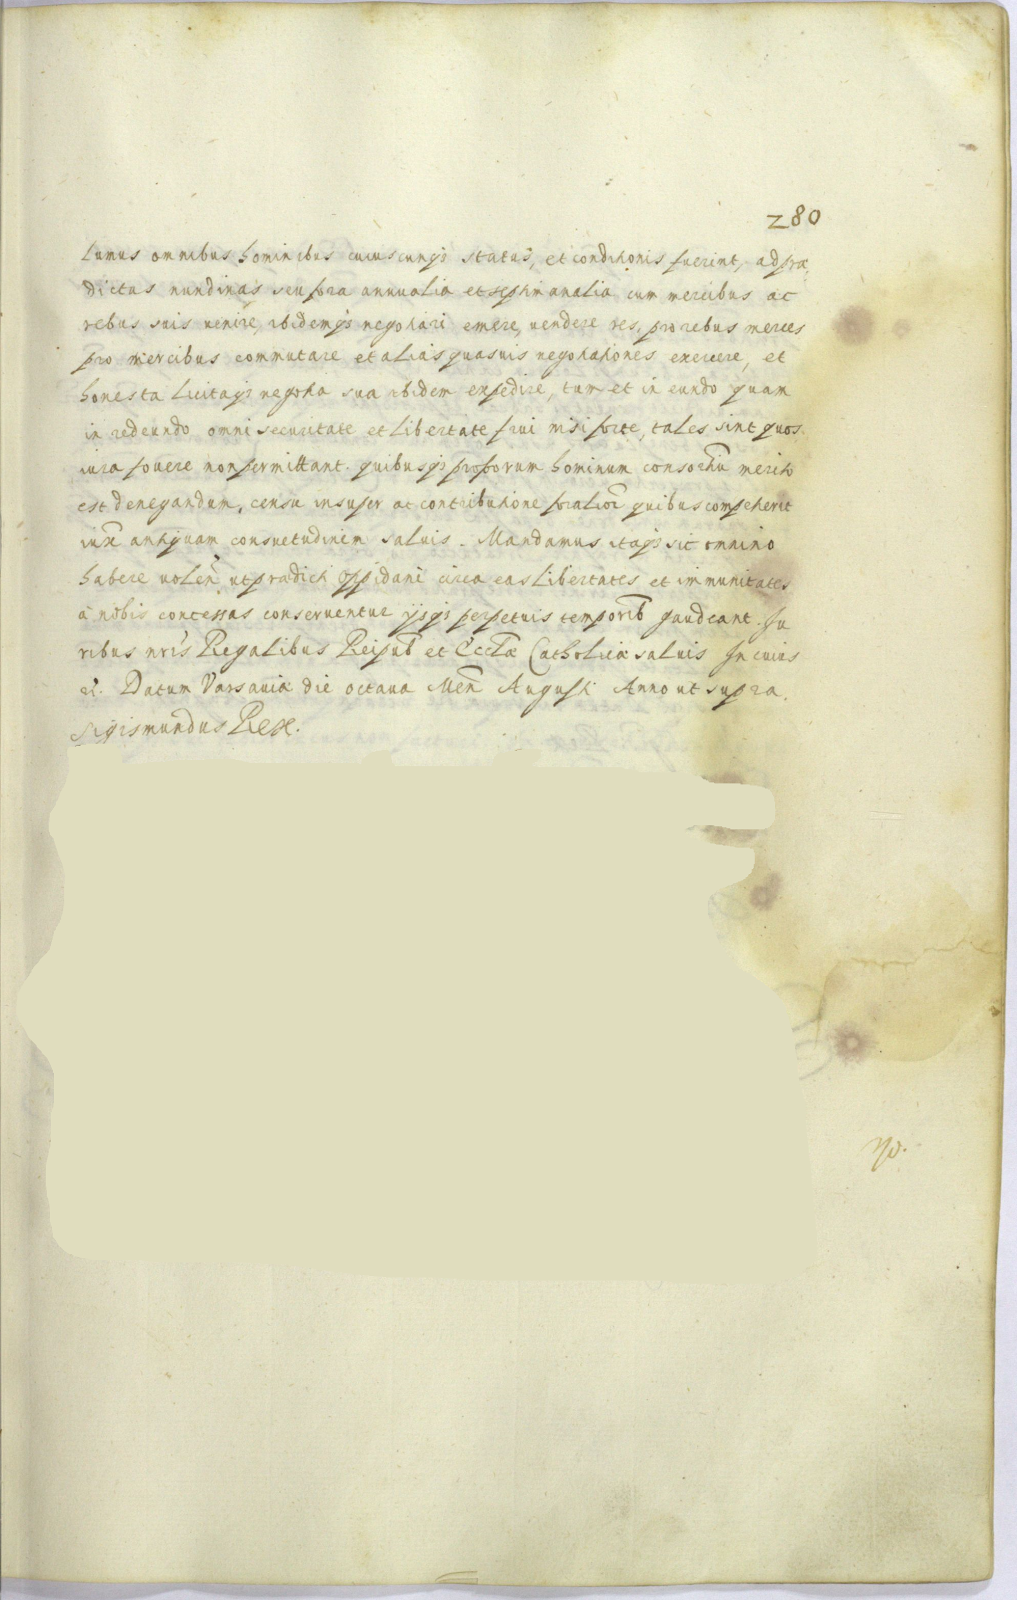 280
lumus omnibus hominibus cuiuscunqs status, et conditionis fuerint, ad præ,
dictas nundinas seu fora annualia et septimanalia cum mercibus ac
rebus suis uenire, ibidemqs negotiari emere, uendere res, pro rebus merces
pro mercibus commutare et alias quasuis negotiationes exercere, et
honesta licitaqs negotia sua ibidem expedire, tum et in eundo quam
in redeundo omni securitate et libertate frui nisi forte, tales sint quos
iura fouere non permittant. quibusqs proforum hominum consortiũ merito
est denegandum, censu insuper ac contributione foraliũ quibus competierit
iux̃ antiquam consuetudinem saluis. Mandamus itaqs sic omnino
habere uoleñ ut prædicti Oppidani circa eas libertates et immunitates
à nobis concessas conseruentur ijsqs perpetuis temporib̃ gaudeant. Iu
ribus nr̃is Regalibus Reipub̃ et Eccl̃æ Catholicæ saluis In cuius
&. Datum Varsauiæ die octaua Meñ Augusti Anno ut supra.
Sigismundus Rex.